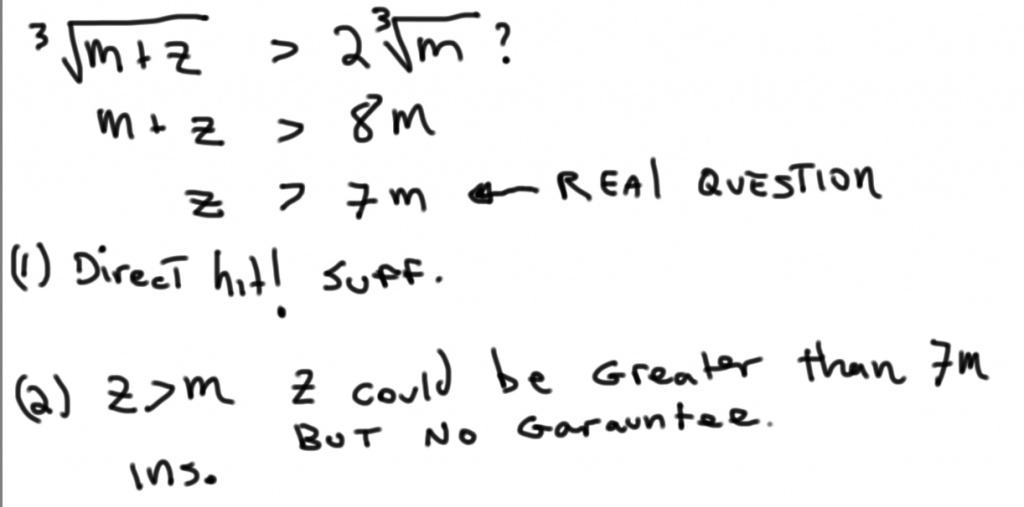 ³√m+z > 2³√m ?
m + z > 8m
z > 7m ← REAl QUESTION
(1) Direct hit! Suff.
(2) z>m z could be Greater than 7m
BUT NO Garauntee.
Ins.